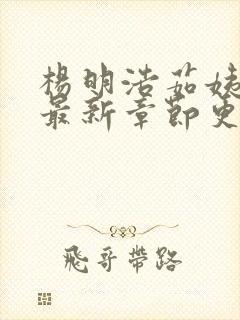 楊明浩茹姨
最新章節更
飛哥帶路